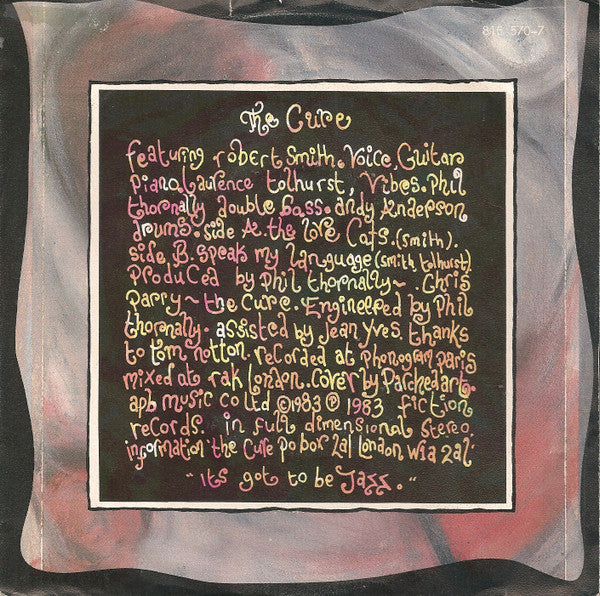 815 570-7
The Cure
featuring robert smith. Voice, Guitar
piano. Laurence tolhurst, Vibes. Phil
thornally double bass. andy Anderson
drums. side A. the love Cats. (smith).
side B. speak my language (smith, tolhurst).
Produced by Phil thornally~. Chris
Parry~the Cure. Engineered by Phil
thornally. assisted by Jean Yves. thanks
to tom notton. recorded at Phonogram paris
mixed at rak london. Cover by Parchedart.
apb music co ltd ©1983 ℗ 1983 fiction
records. in full dimensional stereo.
information 'the Cure po box 2al london w1a 2al'
"its got to be Jazz."